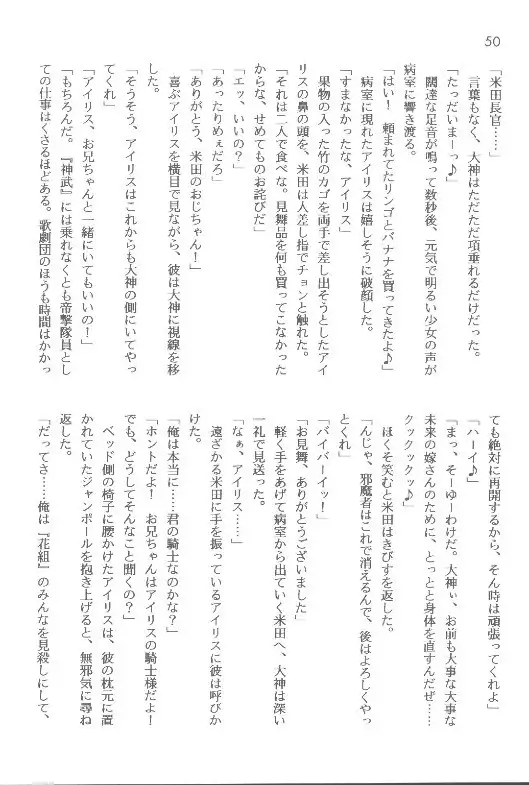 50
「米田長官……」
　言葉もなく、大神はただただ項垂れるだけだった。
「たっだいまーっ♪」
　闊達な足音が鳴って数秒後、元気で明るい少女の声が
病室に響き渡る。
「はい！　頼まれてたリンゴとバナナを買ってきたよ♪」
　病室に現れたアイリスは嬉しそうに破顔した。
「すまなかったな、アイリス」
　果物の入った竹のカゴを両手で差し出そうとしたアイ
リスの鼻の頭を、米田は人差し指でチョンと触れた。
「それは二人で食べな。見舞品を何も買ってこなかった
からな、せめてものお詫びだ」
「エッ、いいの？」
「あったりめぇだろ」
「ありがとう、米田のおじちゃん！」
　喜ぶアイリスを横目で見ながら、彼は大神に視線を移
した。
「そうそう、アイリスはこれからも大神の側にいてやっ
てくれ」
「アイリス、お兄ちゃんと一緒にいてもいいの！」
「もちろんだ。『神武』には乗れなくとも帝撃隊員とし
ての仕事はくさるほどある。歌劇団のほうも時間はかかっ
ても絶対に再開するから、そん時は頑張ってくれよ」
「ハーイ♪」
「まっ、そーゆーわけだ。大神ぃ、お前も大事な大事な
未来の嫁さんのために、とっとと身体を直すんだぜ……
クックックッ♪」
　ほくそ笑むと米田はきびすを返した。
「んじゃ、邪魔者はこれで消えるんで、後はよろしくやっ
とくれ」
「バイバーイッ！」
「お見舞、ありがとうございました」
　軽く手をあげて病室から出ていく米田へ、大神は深い
一礼で見送った。
「なぁ、アイリス……」
　遠ざかる米田に手を振っているアイリスに彼は呼びか
けた。
「俺は本当に……君の騎士なのかな？」
「ホントだよ！　お兄ちゃんはアイリスの騎士様だよ！
でも、どうしてそんなこと聞くの？」
　ベッド側の椅子に腰かけたアイリスは、彼の枕元に置
かれていたジャンポールを抱き上げると、無邪気に尋ね
返した。
「だってさ……俺は『花組』のみんなを見殺しにして、